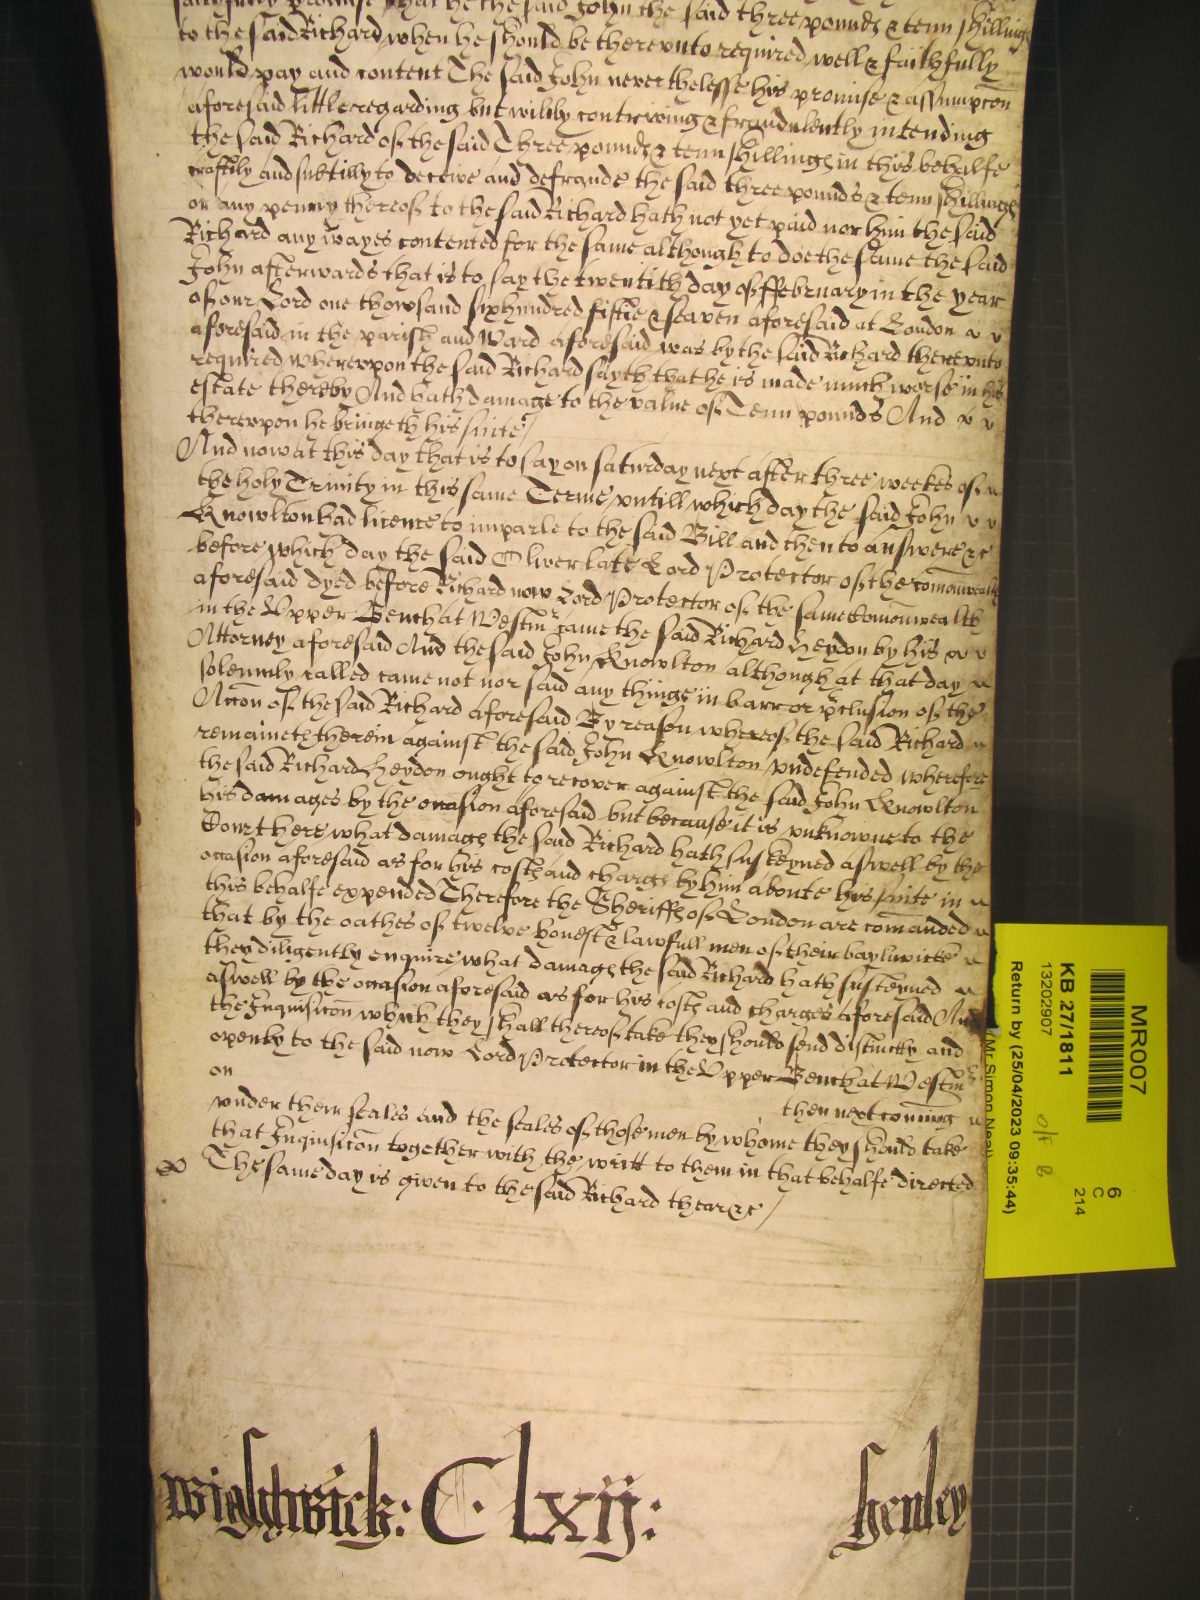 faithfully promise that he the said John the said three poundꝭ & tenn shillingꝭ
to the said Richard when he should be therevnto required well & faithfully
would pay and content The said John neverthelesse his promise & assumpcon
aforesaid little regarding but wilily contriving & fraudulently intending
the said Richard of the said Three poundꝭ & tenn shillingꝭ in this behalfe
craftily and subtilly to deceive and defraude the said three pounds & tenn shillingꝭ
or any penny thereof to the said Richard hath not yet paid nor him the said
Richard any wayes contented for the same although to doe the same the said
John afterwards that is to say the twentith day of ffebruary in the year
of our Lord one thowsand six hundred fiftie & seaven aforesaid at London
aforesaid in the parish and Ward aforesaid was by the said Richard therevnto
required wherevpon the said Richard sayth that he is made much worse in his
estate thereby And hath damage to the value of Tenn pounds And
therevpon he bringeth his suite /
And now at this day that is to say on Saturday next after three weekes of
the holy Trinity in this same Terme vntill which day the said John
Knowlton had licence to imparle to the said Bill and then to answere &c
before which day the said Oliver late Lord Protector of the comonwealth
aforesaid dyed before Richard now Lord Protector of the same Comonwealth
in the Vpper Bench at Westmr came the said Richard Heydon by his
Attorney aforesaid And the said John Knowlton although at that day
solemnly called came not nor said any thinge in barr or pclusion of the
Accon of the said Richard aforesaid By reason whereof the said Richard
remaineth therein against the said John Knowlton vndefended wherefore
the said Richard Heydon ought to recover against the said John Knowlton
his damages by the occasion aforesaid but because it is vnknowne to the
Court here what damagꝭ the said Richard hath susteyned aswell by the
occasion aforesaid as for his costꝭ and chargꝭ by him aboute his suite in
this behalfe expended Therefore the Sheriffꝭ of London are comanded
that by the oathes of twelve honest & lawfull men of their bayliwicke
they diligently enquire what damagꝭ the said Richard hath susteyned
aswell by the occasion aforesaid as for his costꝭ and charges aforesaid And
the Inquisicon which they shall thereof take they should send distinctly and
openly to the said now Lord Protector in the Vpper Bench at Westm
on then next coming
vnder their seales and the seales of those men by whome they should take
that Inquisicon together with the writt to them in that behalfe directed
The same day is given to the said Richard there &c /
Wightwick: Clxij: henley
MR007
KB 27/1811
13202907
Return by (25/04/2023 09:35:44)
(Mr Simon Neal)
6
C
214